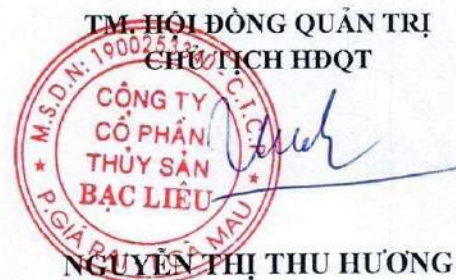 TM. HỘI ĐỒNG QUẢN TRỊ
CHỦ TỊCH HĐQT
M.S.D.N: 19002533 - C.T.C.P
CÔNG TY
CỔ PHẦN
THỦY SẢN
BẠC LIÊU
P.GIÁ RAI CÀ MAU
NGUYỄN THỊ THU HƯƠNG